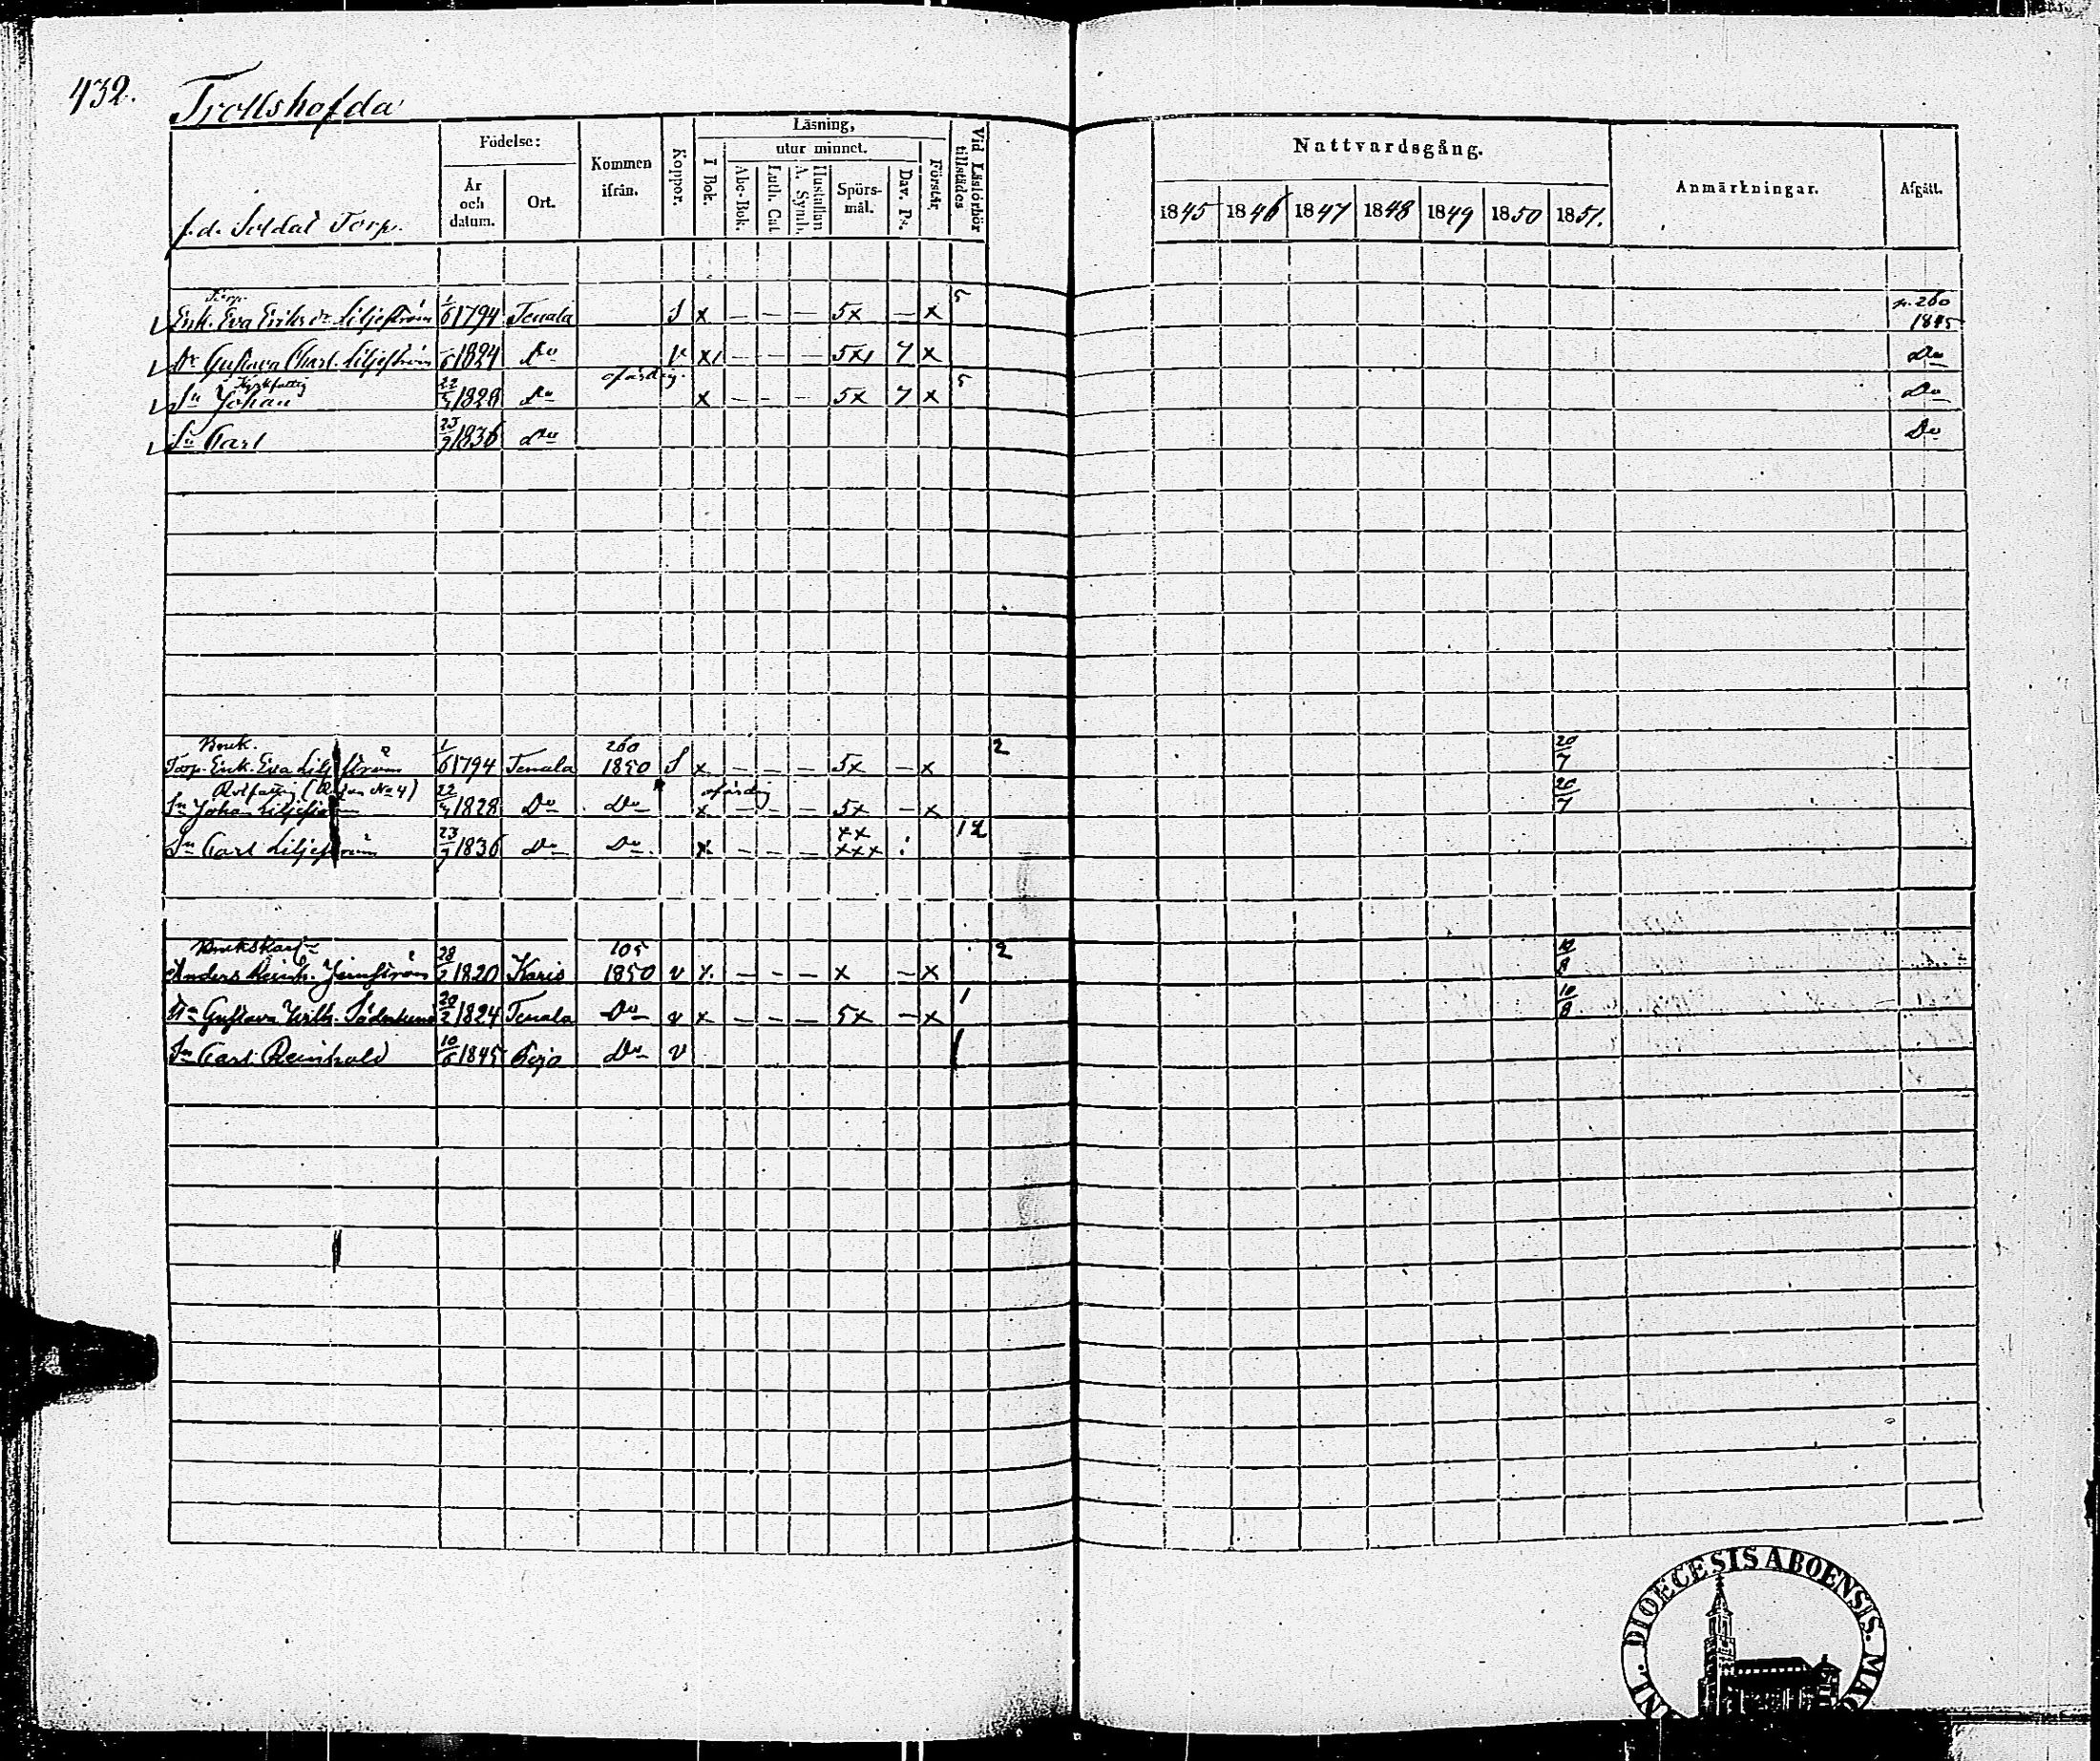 432.
Trollshofda
f.d. Soldat Torp.
Födelse:
År och datum.
Ort.
Kommen ifrån.
Koppor.
Läsning,
I Bok.
utur minnet.
Abc-Bok.
Luth. Cat.
Hustaflan A. Symb.
Spörs-mål.
Dav. Ps.
Förstår
Vid Läsförhör tillstädes
Nattvardsgång.
1845 1846 1847 1848 1849 1850 1851.
Anmärkningar.
Afgått.
Torp.
Enk. Eva Eriksdr Liljeström 1/6 1794 Tenala S x — — — 5x — x 5 p. 260 1845
Dr Gustava Charl. Liljeström 1824 Do v x — — — 5x 7 x Do
Kyrkfattig ofärdig.
Sn Johan 22 1828 Do x — — — 5x 7 x 5 Do
Sn Carl 23/7 1836 Do Do
Bruk. 260 2 20/7
Torp. Enk. Eva Liljeström 1/6 1794 Tenala 1850 S x — — — 5x — x
Rotfattig No 4) ofärdig 20/7
Sn Johan Liljeström 22 1828 Do Do x — — — 5x — x
Sn Carl Liljeström 23/7 1836 Do Do x — — — xx xxx 12
Brukskarl 105 2 10/8
Anders Reinh. Jernström 28/2 1820 Karis 1850 v x — — — x — x
Gustava Wilh. Söderlund 20/2 1824 Tenala Do v x — — — 5x — x 1 10/8
Sn Carl Reinhold 10/6 1845 Pojo Do v 1
DIOECESIS ABOENSIS. MAG